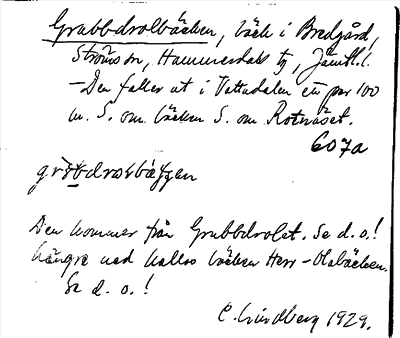 Grubbdrolbäcken, bäck i Bredgård,
Ströms sn, Hammerdals tg, Jämtl. l.
– Den faller ut i Vattudalen ett par 100
m. S. om bäcken S. om Rotnäset.
607a
Den kommer från Grubbdrolet. Se d. o.!
Längre ned kallas bäcken Herr-Olabäcken.
Se d. o.!
C. Lindberg 1929.